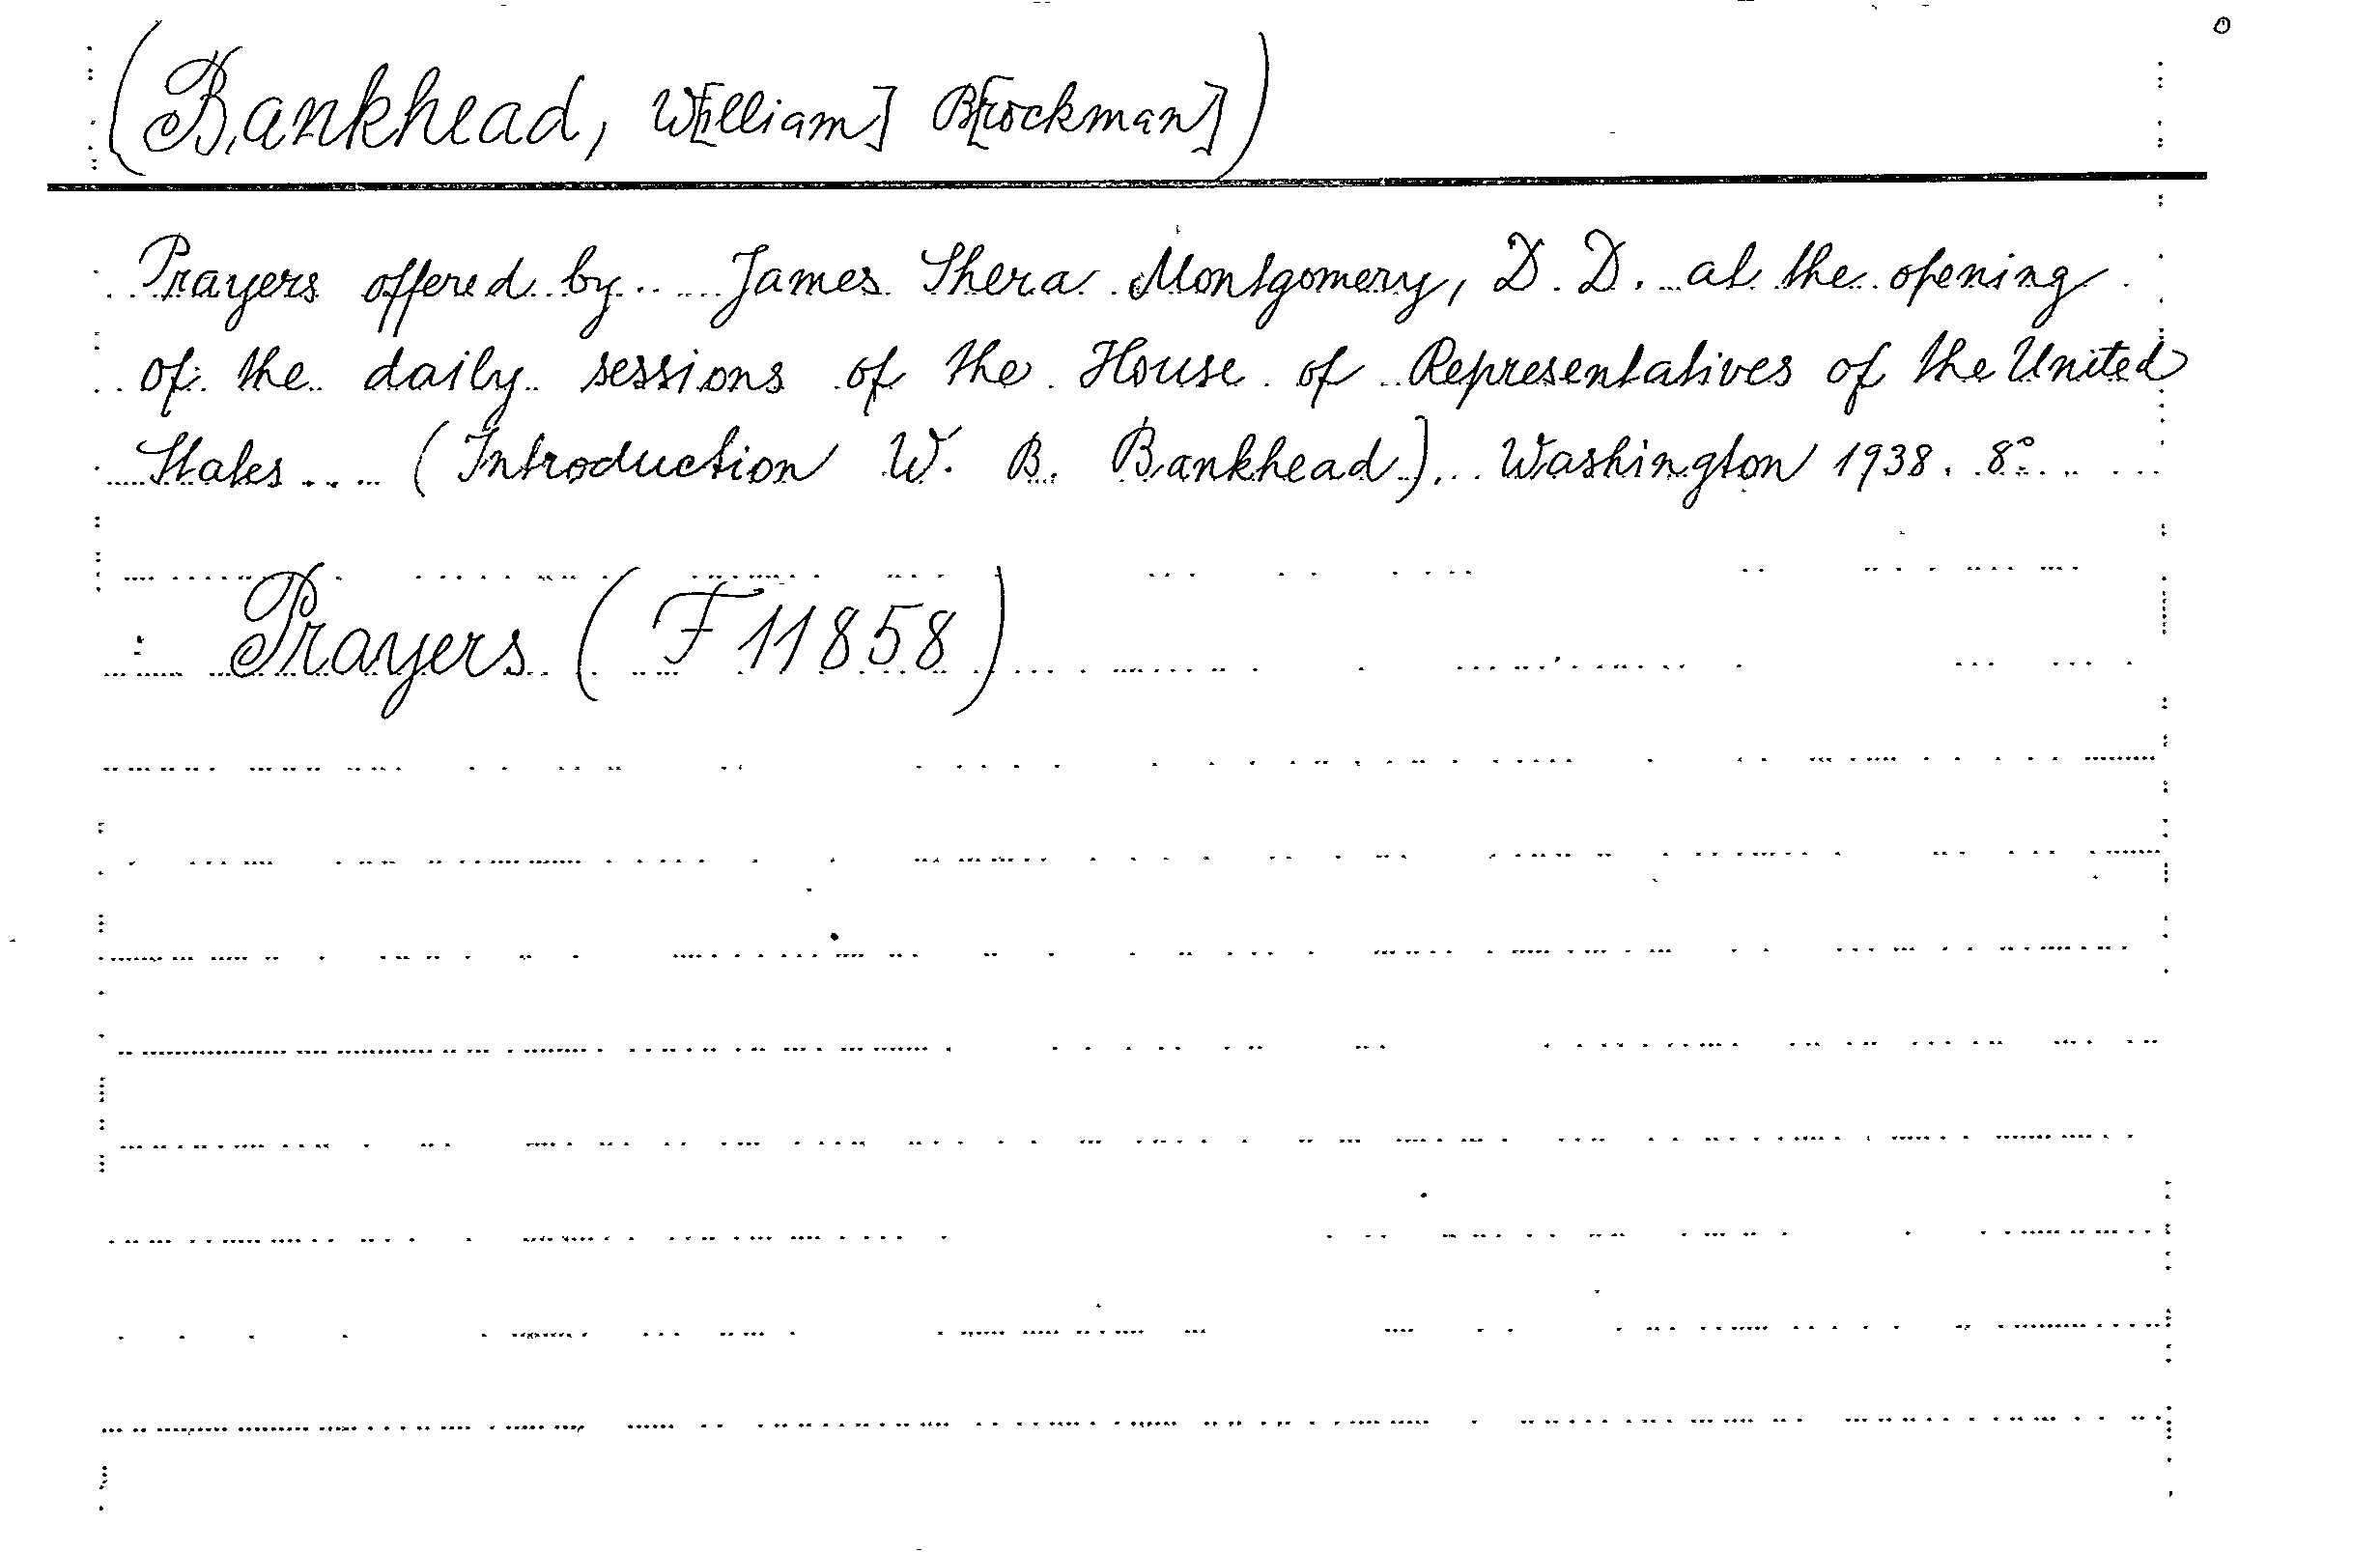 (Bankhead, W[illiam] B[rockman])
Prayers offered by ... James Shera Montgomery, D. D. at the opening
of the daily sessions of the House of Representatives of the United
States ... (Introduction W. B. Bankhead). Washington 1938. 8°.
: Prayers (F 11858)